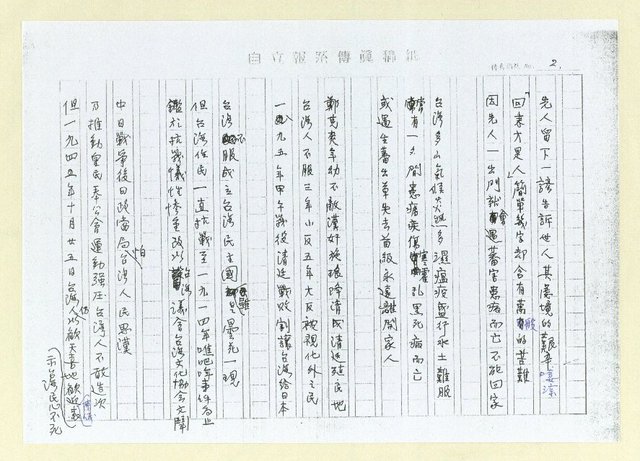 自立報系傳真稿紙
2.
先人留下一諺告訴世人其處境的艱辛淒涼
「回來才是人」簡單幾字卻含有萬般的苦難
因先人一出門就會遇蕃害患病而亡不能回家
台灣多山氣候炎熱多濕瘟疫盛行水土難服
常有一夕間患瘧疾傷寒霍亂黑死病而亡
或遇生蕃出草失去首級永遠離開家人
鄭克爽年幼不敵漢奸施琅降清成清廷殖民地
台灣人不服三年小反五年大反被視化外之民
一八九五年甲午戰後清廷戰敗割讓台灣給日本
台灣不服成立台灣民主國雖是曇花一現
但台灣住民一直抗戰至一九一四年噍吧哖事件為止
鑑於抗戰犧牲慘重改以台灣議會台灣文化協會文鬥
中日戰爭後日政當局怕台灣人民思漢
乃推動皇民奉公會運動強壓台灣人不敢造次
但一九四五年十月廿五日台灣人仍以歡天喜地歡迎
示台灣民心不死